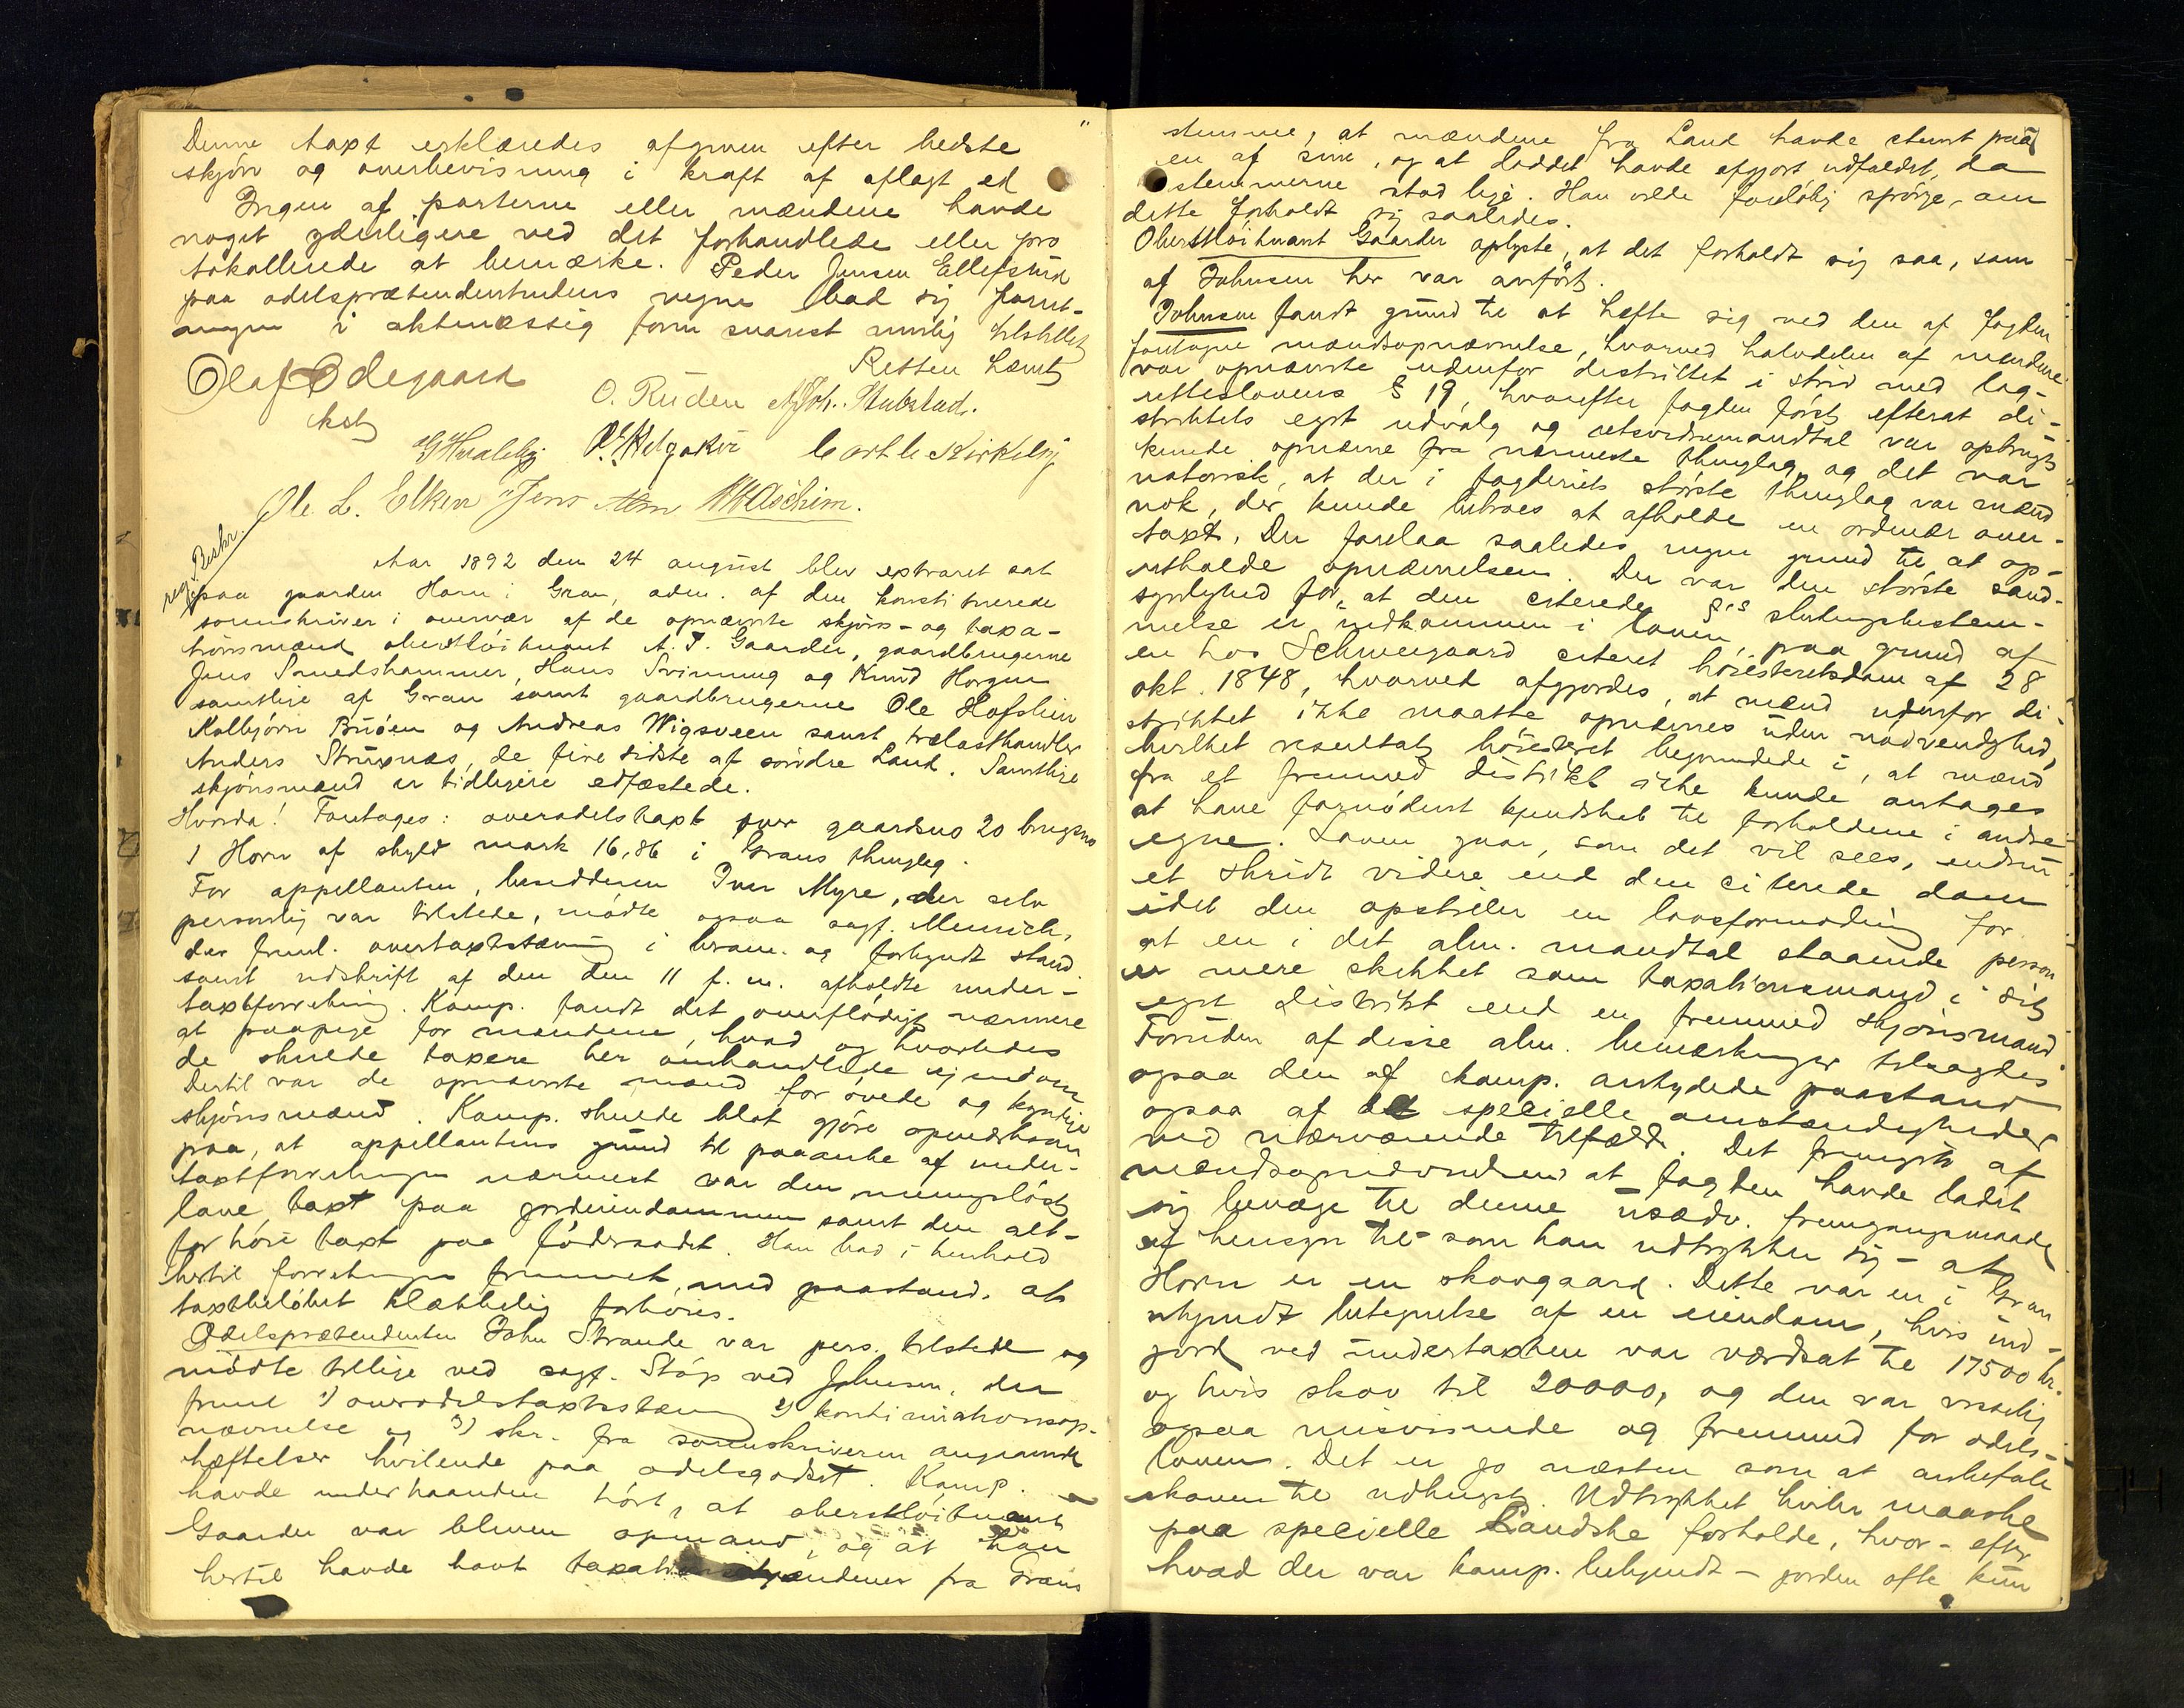 Denne taxt erklæredes afgiven efter bedste
skjøn og overbevisning i kraft af aflagt ed
Ingen af parterne eller mændene havde
noget yderligere ved det forhandlede eller pro
tokollerede at bemærke. Peder Jensen Ellefsrud
paa odelsprætendentindens vegne bad sig forret-
ningen i aktmæssig form snarest mulig tilstillet
Retten hævet
Olaf Ødegaard
kst
O. Ruden A. Joh. Stubstad.
G Hvaleby Helgaker Carl C. Kirkeby
Ole L. Elken Jens Alm Aschim.
Beskr.
Aar 1892 den 24 august blev extraret sat
paa gaarden Horn i Gran, adm. af den konstituerede
sorenskriver i overvær af de opnævnte skjøns- og taxa-
tionsmænd oberstløitnant A. T. Gaarder, gaardbrugerne
Jens Smedshammer, Hans Svinning og Knud Horgen
samtlige af Gran samt gaardbrugerne Ole Hofslien
Kolbjørn Bruøen og Andreas Wigsveen samt trælasthandler
Anders Struxnæs, de fire sidste af søndre Land. Samtlige
skjønsmænd er tidligere edfæstede.
Hvorda! Foretoges: overodelstaxt over gaardsno 20 brugsno
1 Horn af skyld mark 16,86 i Grans thinglag.
For appellanten, besidderen Iver Myre, der selv
personlig var tilstede, mødte ogsaa sagf. Minsich,
der freml. overtaxtstævning i bram. og forkyndt stand
samt udskrift af den den 11 f. m. afholdte under-
taxtforretning. Komp. fandt det overflødigt nærmere
at paapege for mændene, hvad og hvorledes
de skulde taxere her omhandlede eiendom
Dertil var de opnævnte mænd for øvede og kyndige
skjønsmænd. Komp. skulde blot gjøre opmærksom
paa, at appellantens grund til paaanke af under-
taxtforretningen nærmest var den meningsløst
lave taxt paa jordeiendommen samt den alt-
for høie taxt paa føderaadet. Han bad i henhold
hertil forretningen fremmet, med paastand. at
taxtbeløbet klækkelig forhøies.
Odelsprætendenten John Strande var pers. tilstede og
mødte tillige ved sagf. Støp ved Johnsen, der
freml 1) overodelstaxtstævn 2) kontinuationsop-
nævnelse og 3) skr. fra sorenskriveren angaaende
hæftelser hvilende paa odelsgodset. Komp.
havde underhaanden hørt, at oberstløitnant
Gaarder var bleven opmand, og at han
hertil havde havt taxationsmændene fra Grans
stemme, at mændene fra Land havde stemt paa
en af sine, og at loddet havde afgjort udfaldet, da
stemmerne stod lige. Han vilde foreløbig spørge, om
dette forholdt sig saaledes.
Oberstløitnant Gaarder oplyste, at det forholdt sig saa, som
af Johnsen her var anført.
Johnsen fandt grund til at hefte sig ved den af fogden
foretagne mændsopnævnelse, hvorved halvdelen af mændene
var opnævnte udenfor distriktet i strid med lag-
rettelovens § 19, hvorefter fogden først efterat di-
striktets eget udvalg og retsvidnemandtal var opbrugt
kunde opnævne fra nærmeste thinglag, og det var
notorisk, at der i fogderiets største thinglag var mænd
nok, der kunde betroes at afholde en ordinær over-
taxt. Der forelaa saaledes ingen grund til at op-
retholde opnævnelsen. Der var den største sand-
synlighed for, at den citerede §'s slutningsbestem-
melse er indkommen i loven paa grund af
en hos Schweigaard citeret høiesteretsdom af 28
okt. 1848, hvorved afgjordes, at mænd udenfor di-
striktet ikke maatte opnævnes uden nødvendighed,
hvilket resultat høiesteret begrundede i, at mænd
fra et fremmed distrikt ikke kunde antages
at have fornødent kjendskab til forholdene i andre
egne. Loven gaar, som det vil sees, endnu
et skridt videre end den citerede dom
idet den opstiller en lovsformodning for
at en i det alm. mandtal staaende person
er mere skikket som taxationsmand i sit
eget distrikt end en fremmed skjønsmand.
Foruden af disse alm. bemærkninger tilsagdes
ogsaa den af komp. antydede paastand
ogsaa af de specielle omstændigheder
ved nærværende tilfælde. Det fremgik af
mændsopnævnelsen at fogden havde ladet
sig bevæge til denne usædv. fremgangsmaade
af hensyn til - som han udtrykker sig - at
Horn er en skovgaard. Dette var en i Gran
ukjendt betegnelse af en eiendom, hvis ind-
jord ved undertaxten var værdsat til 17500 kr.
og hvis skov til 20000, og den var visselig
ogsaa misvisende og fremmed for odels-
loven. Det er jo næsten som at anbefale
skoven til udhugst. Udtrykket hviler maaske
paa specielle Landske forholde, hvor - efter
hvad der var komp. bekjendt - jorden ofte kun